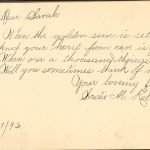 Dear Sarah
When the golden sun is set
And your
When over a thousand things
Will you sometimes think of m
Your loving
Sadie M.
/93